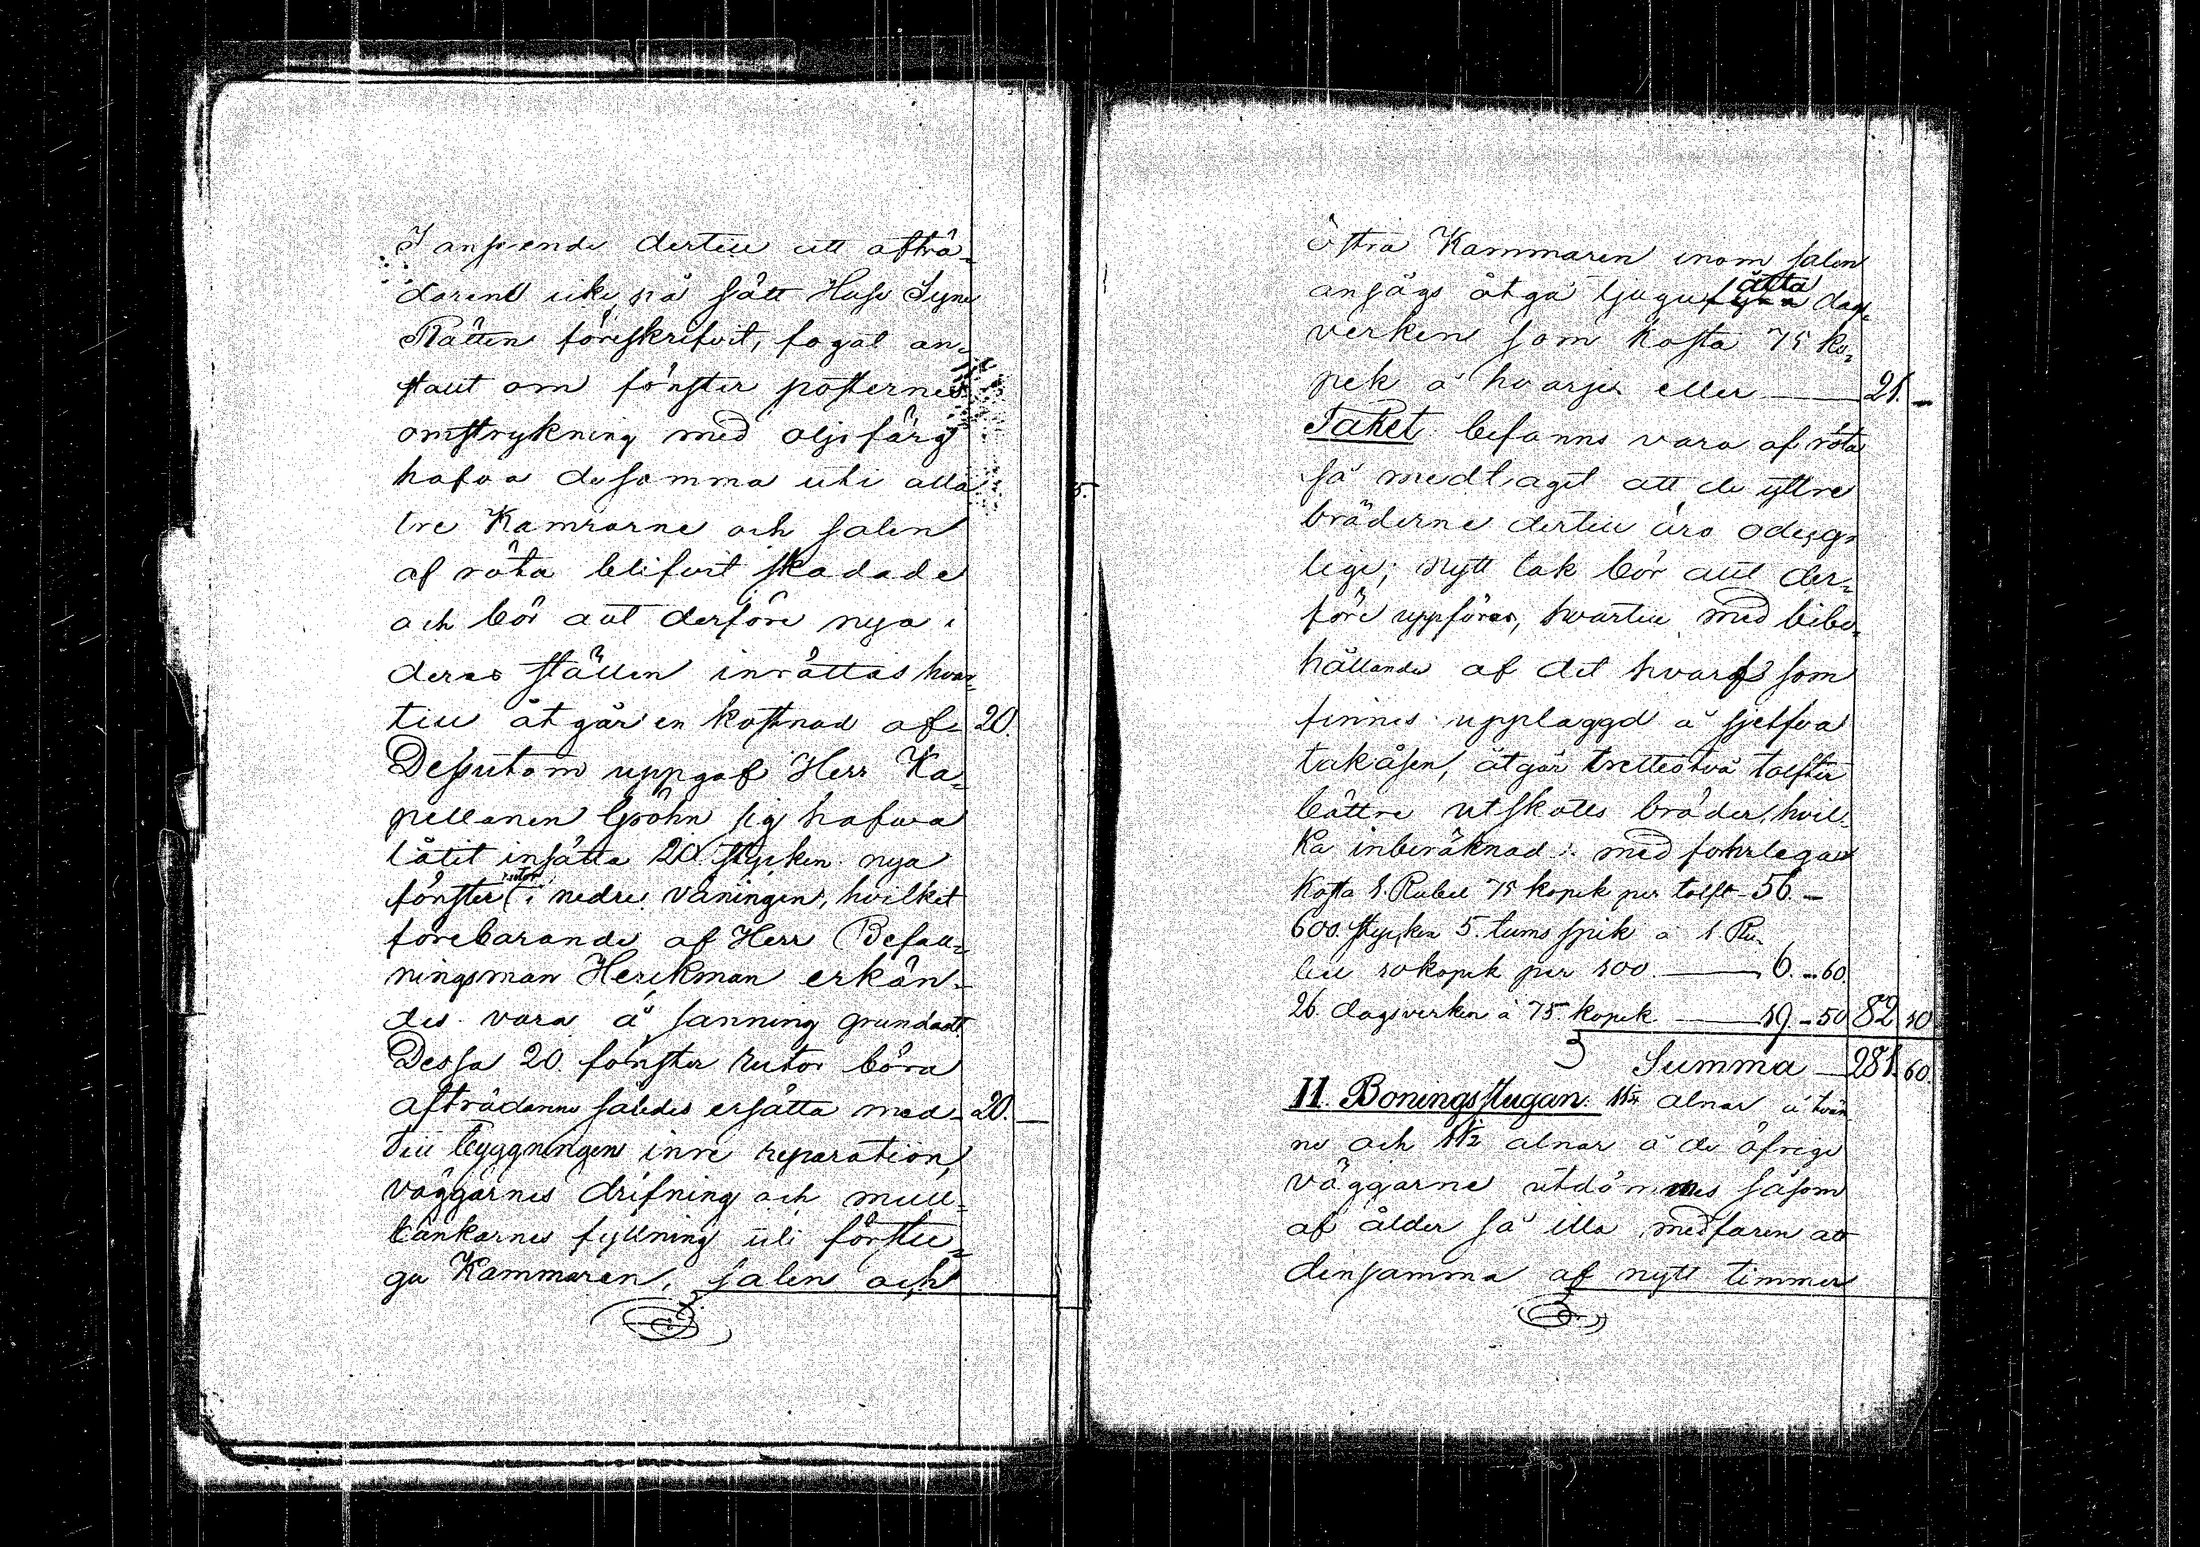 I anseende dertill att afträ-
daren icke på sätt Huse Syne
Rätten föreskrifvit, fogat an-
stallt om fönster posternes
omstrykning med oljefärg
hafva desamma uti alla
tre Kamrarne och salen
af röta blifvit skadade
och bör allt derföre nya i
deras ställen inrättas hvar-
till åtgår en kostnad af - 20.
Dessutom uppgaf Herr Ka-
pellanen Gröhn sig hafva
låtit insätta 20. stycken nya
fönster rutor i nedre våningen, hvilket
förebarande af Herr Befall-
ningsman Herckman erkän-
des vara å sanning grundadt.
Dessa 20. fönster rutor böra
afträdarne således ersätta med - 20. —
Till byggningens inre reparation,
väggarnes drifning och mull-
bänkarnes fyllning uti förstu-
gu Kammaren, salen och
Östra Kammaren inom salen
ansågs åtgå tjugu åtta dags-
verken som kosta 75 ko-
pek á hvarje eller — 21. —
Taket befanns vara af röta
så medtaget att de yttre
bräderne dertill äro odug-
lige; nytt tak bör allt der-
före uppföras, hvartill med bibe-
hållande af det hvarf som
finnes upplaggd å sjelfva
takåsen, åtgår trettiotvå tolfter
bättre utskotts bräder, hvil-
ka inberäknad: med forlegar
kosta 1. Rubel 75 kopek per tolft - 56. —
600. stycken 5. tums spik á 1 Ru-
bel 10 kopek per 100. — 6. - 60.
26. dagsverken á 75. kopek — 19 - 50 82 10
Summa — 281. 60.
11. Boningsstugan. alnar á tvän
ne och 11½ alnar á de öfrige
väggarne utdömmes såsom
af ålder så illa medfaren att
densamma af nytt timmer